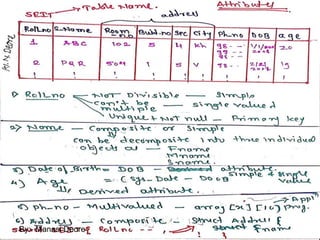 Table Name.
SEIT
address
Attributes
RollNo S.Name Room No Build.no Sec City Ph.no DOB age
1 ABC 102 5 4 Kh 98-- 20
2 PQR 504 1 5 V 93-- 19
1) RollNo - NOT Divisible - Simple
can't be multiple - single valued
Unique & Not null - Primary key
2) Name - Composite or Simple
can be decomposite into three individual
objects as - Fname
Mname
Sname.
3) Date of Birth = DOB - simple & single value
4) Age = (Sys-Date - DOB)
Derived attribute.
5) Ph-no - Multivalued - array [2] [10]
6) Address - Composite - Struct Address {
By- Manas Deore
of Roll no - struct Fname